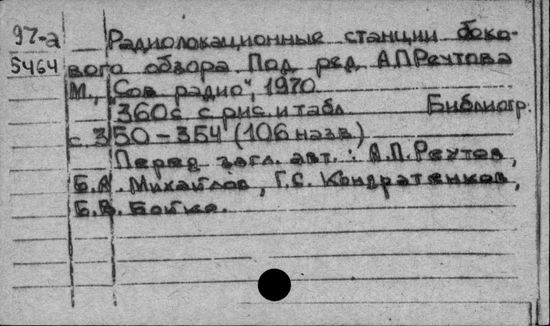 97-а Радиолокационные станции боко-
5464 вого обзора Под ред А.П.Реутова
М., "Сов радио", 1970
360с с рис. и табл Библиогр.
с 350-354 (106 назв.)
Перед загл. авт.: А.П. Реутов,
Б.А. Михайлов, Г.С. Кондратенков,
Б.В. Бойко.